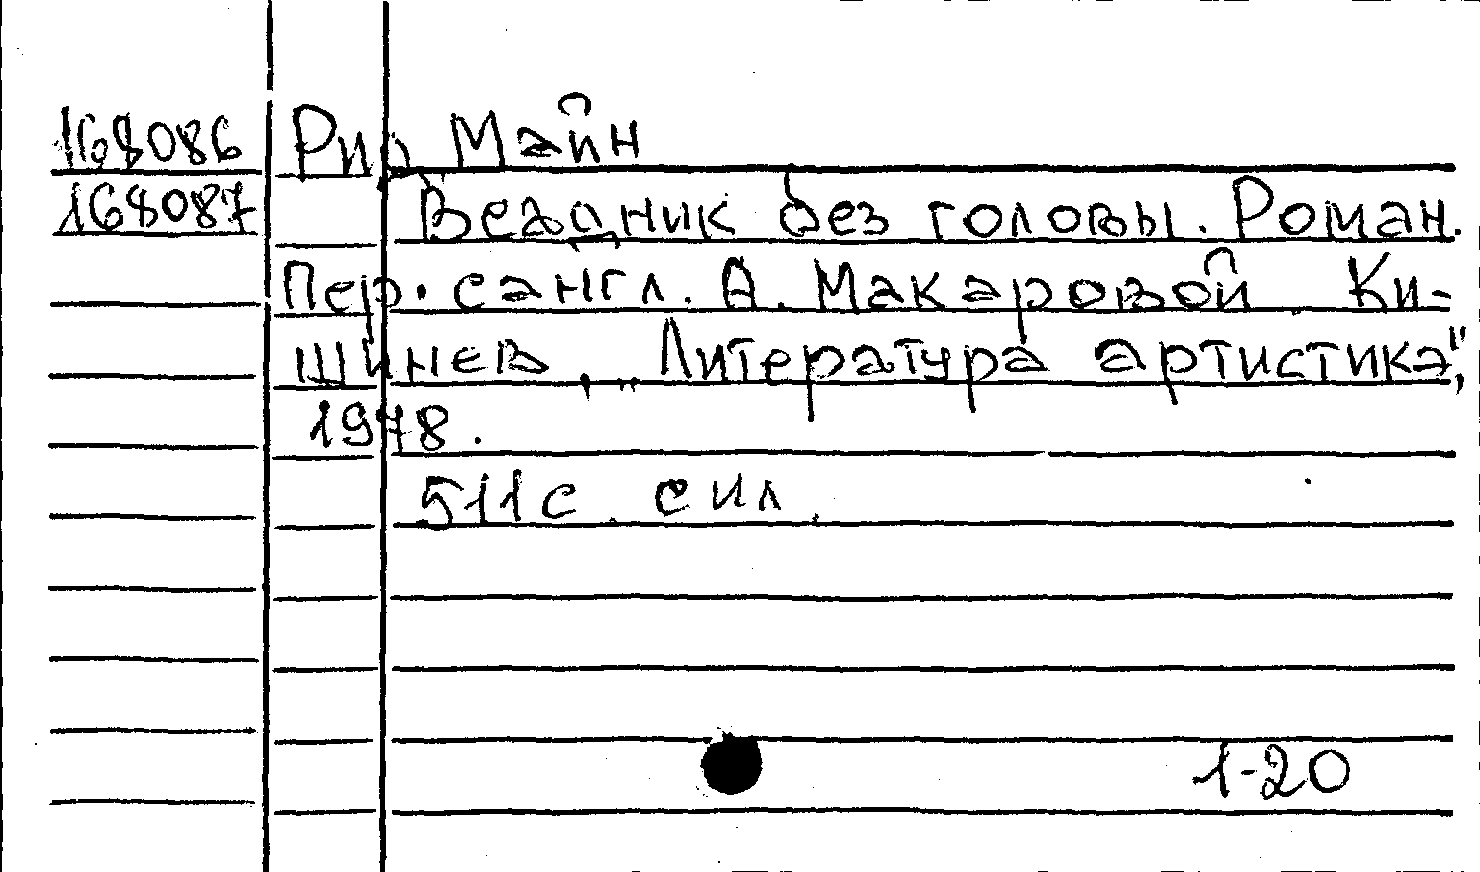 168086 Рид Майн
168087 Всадник без головы. Роман.
Пер. с англ. А. Макаровой. Ки-
шинев, „Литература артистикэ",
1978.
511с. с ил.
1-20